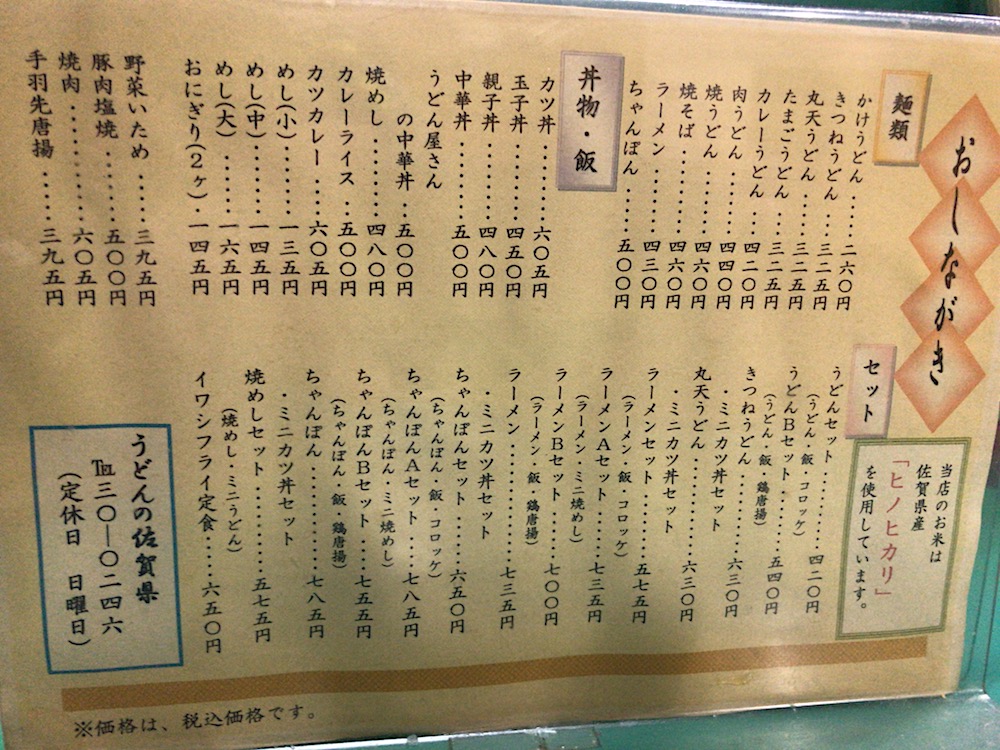 おしながき
当店のお米は
佐賀県産
「ヒノヒカリ」
を使用しています。
麺類
かけうどん……二六〇円
きつねうどん…三二五円
丸天うどん……三二五円
たまごうどん…三二五円
カレーうどん…四二〇円
肉うどん………四四〇円
焼うどん………四六〇円
焼そば…………四六〇円
ラーメン………四三〇円
ちゃんぽん……五〇〇円
丼物・飯
カツ丼…………六〇五円
玉子丼…………四五〇円
親子丼…………四八〇円
中華丼…………五〇〇円
うどん屋さん
の中華丼…五〇〇円
焼めし…………四八〇円
カレーライス…五〇〇円
カツカレー……六〇五円
めし(小)………一三五円
めし(中)………一四五円
めし(大)………一六五円
おにぎり(2ヶ)・一四五円
野菜いため……三九五円
豚肉塩焼………五〇〇円
焼肉……………六〇五円
手羽先唐揚……三九五円
セット
うどんセット………四二〇円
(うどん・飯・コロッケ)
うどんBセット……五四〇円
(うどん・飯・鶏唐揚)
きつねうどん………六三〇円
・ミニカツ丼セット
丸天うどん…………六三〇円
・ミニカツ丼セット
ラーメンセット……五七五円
(ラーメン・飯・コロッケ)
ラーメンAセット…七三五円
(ラーメン・ミニ焼めし)
ラーメンBセット…七〇〇円
(ラーメン・飯・鶏唐揚)
ラーメン……………七三五円
・ミニカツ丼セット
ちゃんぽんセット…六五〇円
(ちゃんぽん・飯・コロッケ)
ちゃんぽんAセット…七八五円
(ちゃんぽん・ミニ焼めし)
ちゃんぽんBセット…七五五円
(ちゃんぽん・飯・鶏唐揚)
ちゃんぽん…………七八五円
・ミニカツ丼セット
焼めしセット………五七五円
(焼めし・ミニうどん)
イワシフライ定食……六五〇円
うどんの佐賀県
℡三〇―〇二四六
(定休日 日曜日)
※価格は、税込価格です。